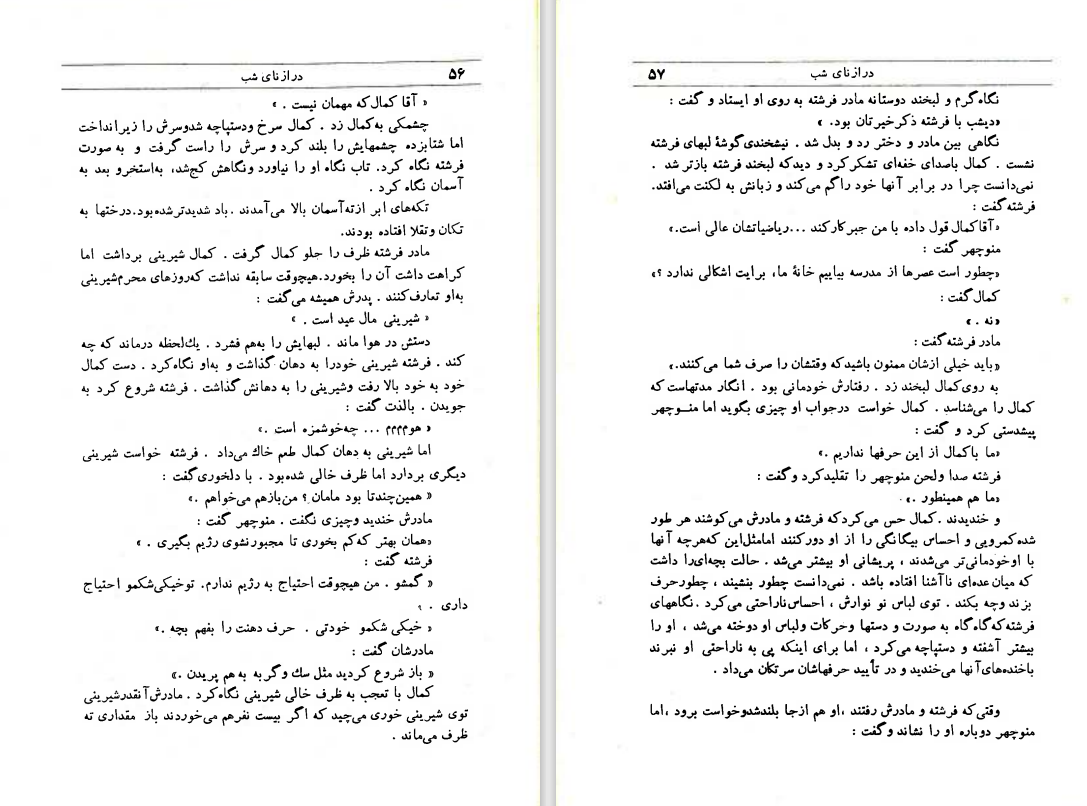 ۵۶
درازنای شب
« آقا کمال‌که مهمان نیست . »
چشمکی به‌کمال زد . کمال سرخ ودستپاچه شدوسرش را زیرانداخت
اما شتابزده چشمهایش را بلند کرد و سرش را راست گرفت و به صورت
فرشته نگاه کرد. تاب نگاه او را نیاورد ونگاهش کج‌شد، به‌استخرو بعد به
آسمان نگاه کرد .
تکه‌های ابر ازته‌آسمان بالا می‌آمدند .باد شدیدترشده‌بود.درختها به
تکان وتقلا افتاده بودند.
مادر فرشته ظرف را جلو کمال گرفت . کمال شیرینی برداشت اما
کراهت داشت آن را بخورد.هیچوقت سابقه نداشت که‌روزهای محرم‌شیرینی
به‌او تعارف‌کنند . پدرش همیشه می‌گفت :
« شیرینی مال عید است . »
دستش در هوا ماند . لبهایش را به‌هم فشرد . یك‌لحظه درماند که چه
کند . فرشته شیرینی خودرا به دهان گذاشت و به‌او نگاه‌کرد . دست کمال
خود به خود بالا رفت وشیرینی را به دهانش گذاشت . فرشته شروع کرد به
جویدن . بالذت گفت :
« هومممم ... چه‌خوشمزه است .»
اما شیرینی به دهان کمال طعم خاك می‌داد . فرشته خواست شیرینی
دیگری بردارد اما ظرف خالی شده‌بود . با دلخوری‌گفت :
« همین‌چندتا بود مامان؟ من‌بازهم می‌خواهم .»
مادرش خندید وچیزی نگفت . منوچهر گفت :
«همان بهتر که‌کم بخوری تا مجبورنشوی رژیم بگیری . »
فرشته گفت :
« گمشو . من هیچوقت احتیاج به رژیم ندارم. توخیکی‌شکمو احتیاج
داری . »
« خیکی شکمو خودتی . حرف دهنت را بفهم بچه .»
مادرشان گفت :
« باز شروع کردید مثل سك و گربه به هم پریدن .»
کمال با تعجب به ظرف خالی شیرینی نگاه‌کرد . مادرش‌آنقدرشیرینی
توی شیرینی خوری می‌چید که اگر بیست نفرهم می‌خوردند باز مقداری ته
ظرف می‌ماند .
درازنای شب
۵۷
نگاه‌گرم و لبخند دوستانه مادر فرشته به روی او ایستاد و گفت :
«دیشب با فرشته ذکرخیرتان بود. »
نگاهی بین مادر و دختر رد و بدل شد . نیشخندی‌گوشهٔ لبهای فرشته
نشست . کمال باصدای خفه‌ای تشکرکرد و دیدکه لبخند فرشته بازتر شد .
نمی‌دانست چرا در برابر آنها خود راگم می‌کند و زبانش به لکنت می‌افتد.
فرشته‌گفت :
«آقاکمال قول داده با من جبرکارکند ...ریاضیاتشان عالی است.»
منوچهر گفت :
«چطور است عصرها از مدرسه بیاییم خانهٔ ما، برایت اشکالی ندارد ؟»
کمال‌گفت :
«نه . »
مادر فرشته گفت :
«باید خیلی ازشان ممنون باشیدکه وقتشان را صرف شما می‌کنند.»
به روی‌کمال لبخند زد . رفتارش خودمانی بود . انگار مدتهاست که
کمال را می‌شناسد . کمال خواست درجواب او چیزی بگوید اما منـوچهر
پیشدستی کرد و گفت :
«ما باکمال از این حرفها نداریم .»
فرشته صدا ولحن منوچهر را تقلیدکرد وگفت :
«ما هم همینطور .»
و خندیدند .کمال حس می‌کردکه فرشته و مادرش می‌کوشند هر طور
شده‌کمرویی و احساس بیگانگی را از او دورکنند امامثل‌این که‌هرچه آنها
با اوخودمانی‌تر می‌شدند ، پریشانی او بیشتر می‌شد . حالت بچه‌ای‌را داشت
که میان عده‌ای ناآشنا افتاده باشد . نمی‌دانست چطور بنشیند ، چطورحرف
بزند وچه بکند . توی لباس نو نوارش ، احساس‌ناراحتی می‌کرد .نگاههای
فرشته‌که‌گاه‌گاه به صورت و دستها وحرکات ولباس او دوخته می‌شد ، او را
بیشتر آشفته و دستپاچه می‌کرد ، اما برای اینکه پی به ناراحتی او نبرند
باخنده‌های‌آنها می‌خندید و در تأیید حرفهاشان سرتکان می‌داد .
وقتی‌که فرشته و مادرش رفتند ،او هم ازجا بلندشدوخواست برود ،اما
منوچهر دوباره او را نشاند وگفت :